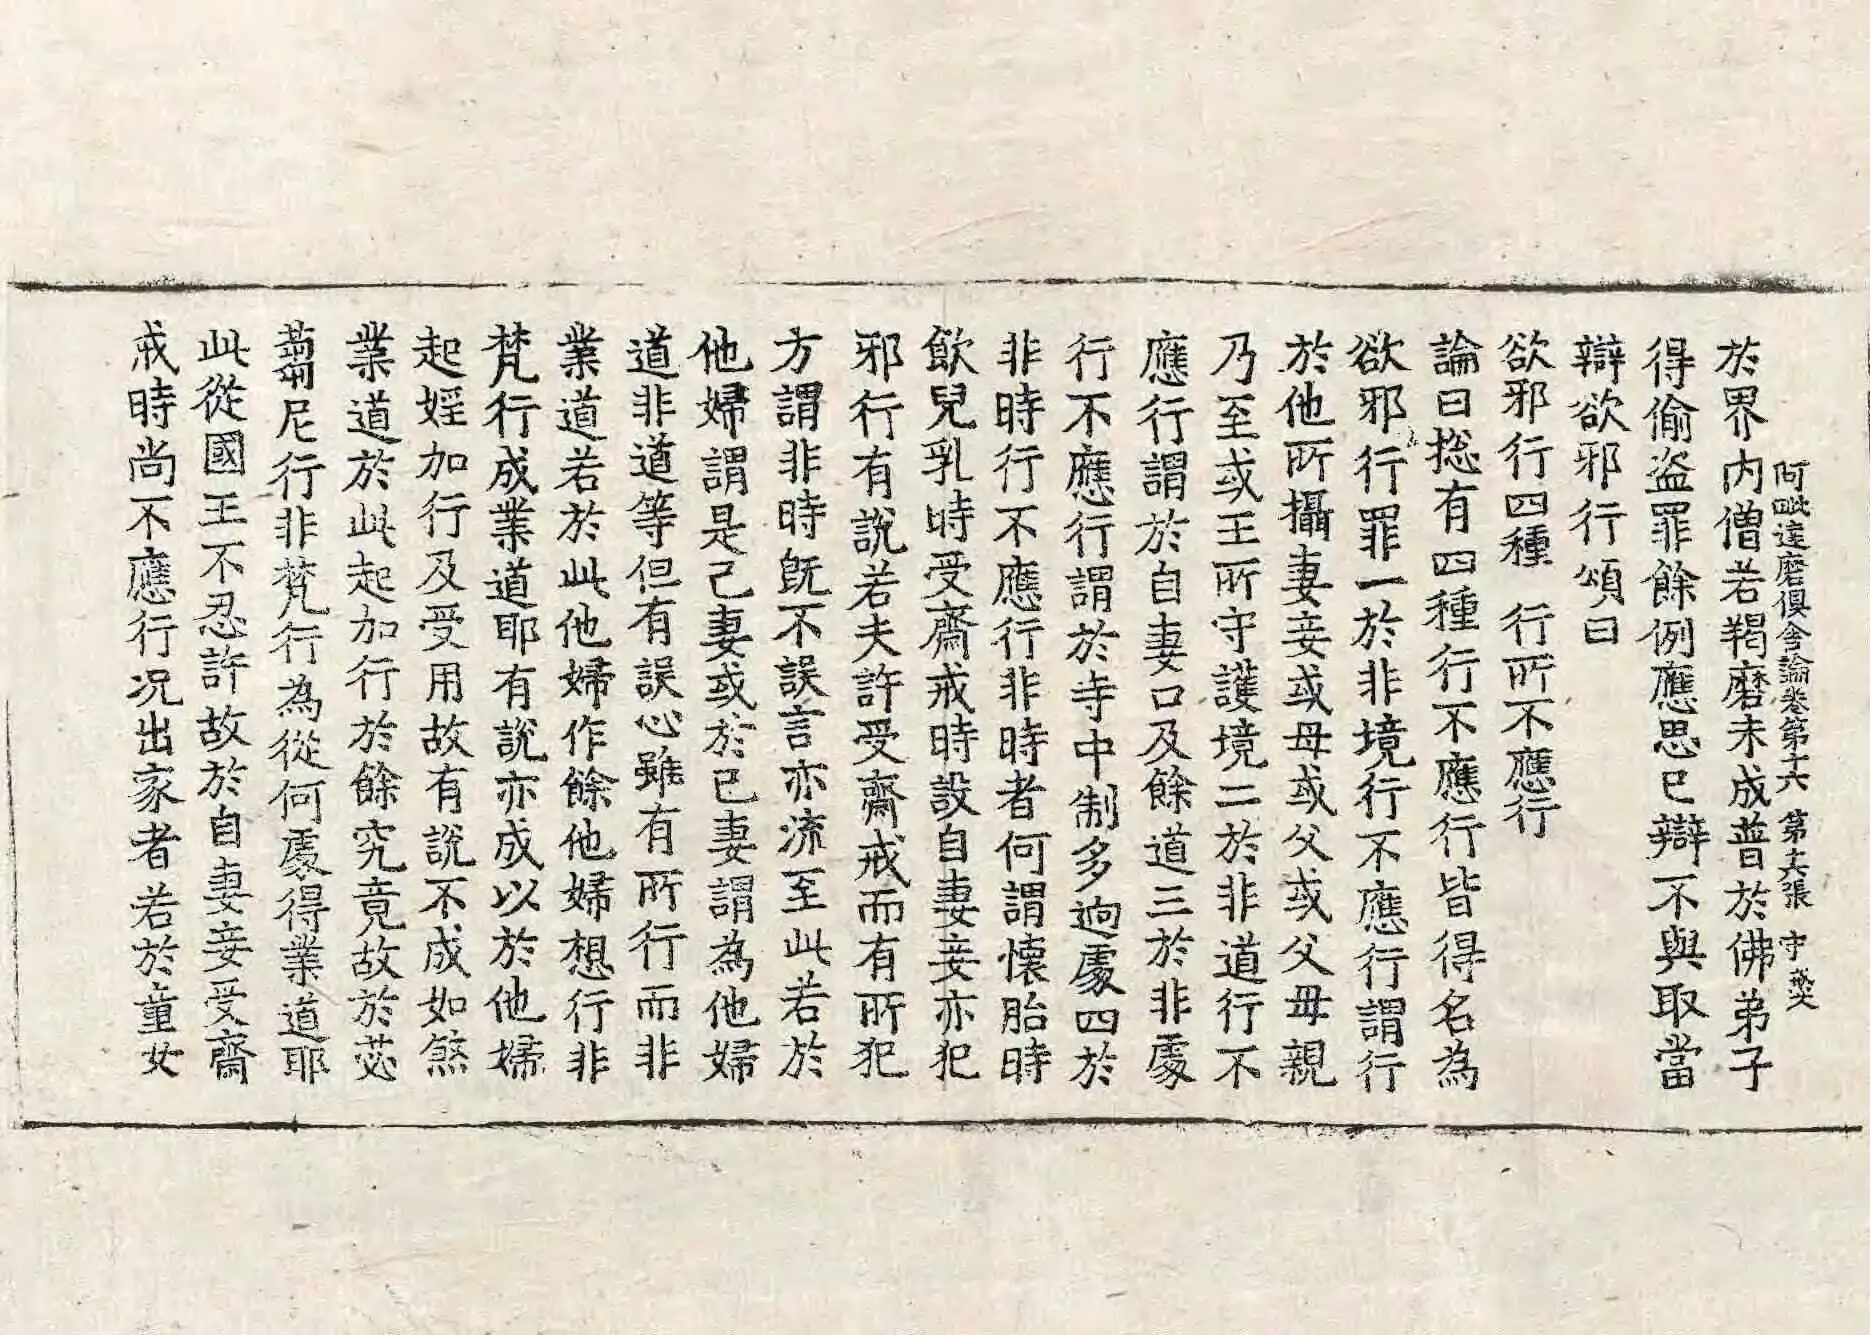 阿毗達磨俱舍論卷第十六 第六張 守
於界內僧若羯磨未成普於佛弟子
得偷盜罪餘例應思已辯不與取當
辯欲邪行頌曰
欲邪行四種 行所不應行
論曰揔有四種行不應行皆得名為
欲邪行罪一於非境行不應行謂行
於他所攝妻妾或母或父或父母親
乃至或王所守護境二於非道行不
應行謂於自妻口及餘道三於非處
行不應行謂於寺中制多逈處四於
非時行不應行非時者何謂懷胎時
飲兒乳時受齋戒時設自妻妾亦犯
邪行有說若夫許受齋戒而有所犯
方謂非時旣不誤言亦流至此若於
他婦謂是己妻或於己妻謂為他婦
道非道等但有誤心雖有所行而非
業道若於此他婦作餘他婦想行非
梵行成業道耶有說亦成以於他婦
起婬加行及受用故有說不成如煞
業道於此起加行於餘究竟故於苾
蒭尼行非梵行為從何處得業道耶
此從國王不忍許故於自妻妾受齋
戒時尚不應行況出家者若於童女